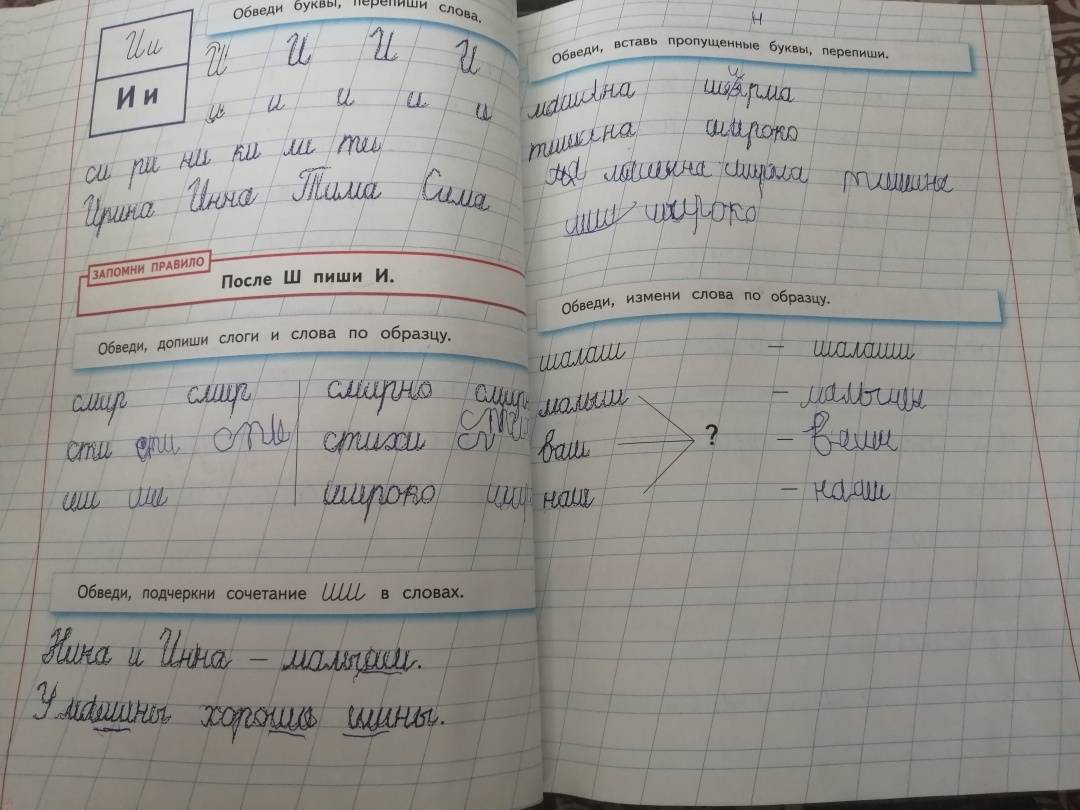 Обведи буквы, перепиши слова.
Ии И И И И
И и и и и и и
си ри ни ки ли ти
Ирина Инна Тима Сима
ЗАПОМНИ ПРАВИЛО
После Ш пиши И.
Обведи, допиши слоги и слова по образцу.
смир смир смирно смирн
сти сти сти стихи сти
ши ши широко шир
Обведи, подчеркни сочетание ши в словах.
Нина и Инна – малыши.
У машины хорошие шины.
н
Обведи, вставь пропущенные буквы, перепиши.
машина ширма
тишина широко
машина тишина
широко
Обведи, измени слова по образцу.
шалаш – шалаши
малыш – малыши
ваш ? – ваши
наш – нааш